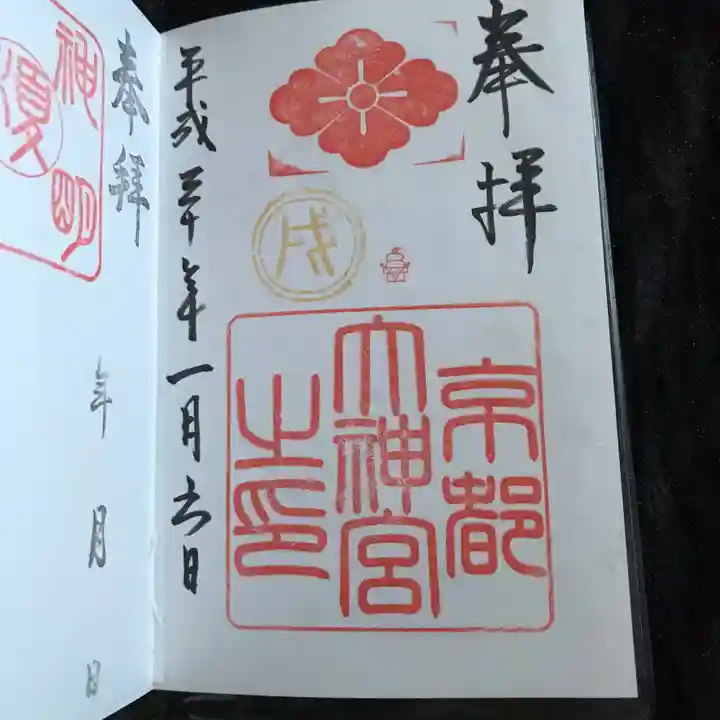 奉拝
戌
京都
大神宮
之印
平成三十年一月六日
奉拝
年月日
神明